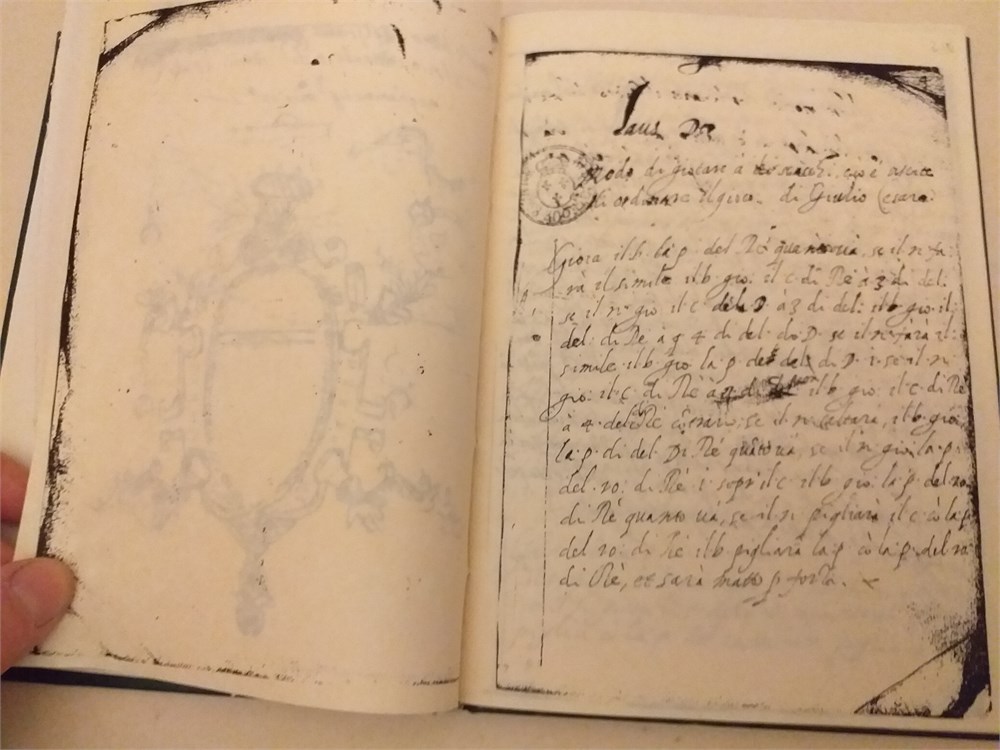 Laus Deo
Modo di giocare à scacchi, cioè uscite
di ordinare il gioco. di Giulio Cesare
Gioca il·b· la·p· del Ré quanto uà, se il·n· fa-
rà il simile il·b· gio: il·c· di Ré à 3 di del:
se il·n· gio: il·c· del·D· à 3 di del: il·b· gio: il·
del: di Ré à 4 di del: di D· se il·n· farà il·
simile, il·b· gio: la·p· del del: di D· 1· se il·n·
gio: il·c· di Ré à il·b· gio: il·c· di Ré
à 4· del Ré se il·n· il·b· gio:
la·p· di del· Di Ré quāto uà, se il·n· gio: la·p·
del·ro: di Ré 1· sopr' il·c· il·b· gio: la·p· del·ro:
di Ré quanto uà, se il·n· pigliarà il·c· cō la·p·
del ro: di Ré il·b· pigliarà la·p· cō la·p· del ro:
di Ré, et sarà matto p forza.